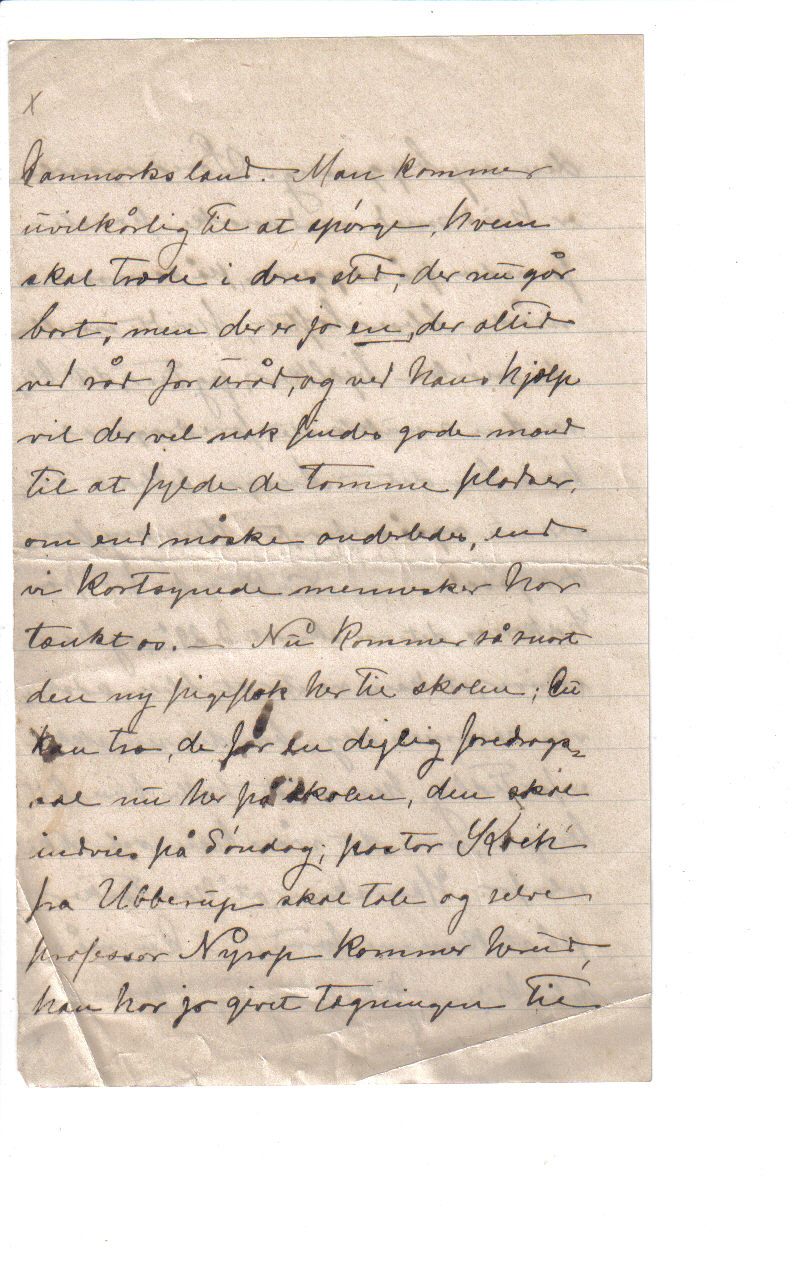 x
Danmarks land. Man kommer
uvilkårlig til at spórge, hvem
skal træde i deres sted, der nu går
bort, men der er jo en, der altid
ved råd for uråd, og ved hans hjælp
vil der vel nok findes gode mænd
til at fylde de tomme pladser,
om end måske anderledes, end
vi kortsynede mennesker har
tænkt os. — Nu kommer så snart
den ny pigeflok her til skolen; Du
kan tro, de får en dejlig foredrags-
sal nu her på skolen, den skal
indvies på Sóndag; pastor
fra Ubberup skal tale og selve
professor Nyrop kommer herud,
han har jo givet tegningen til